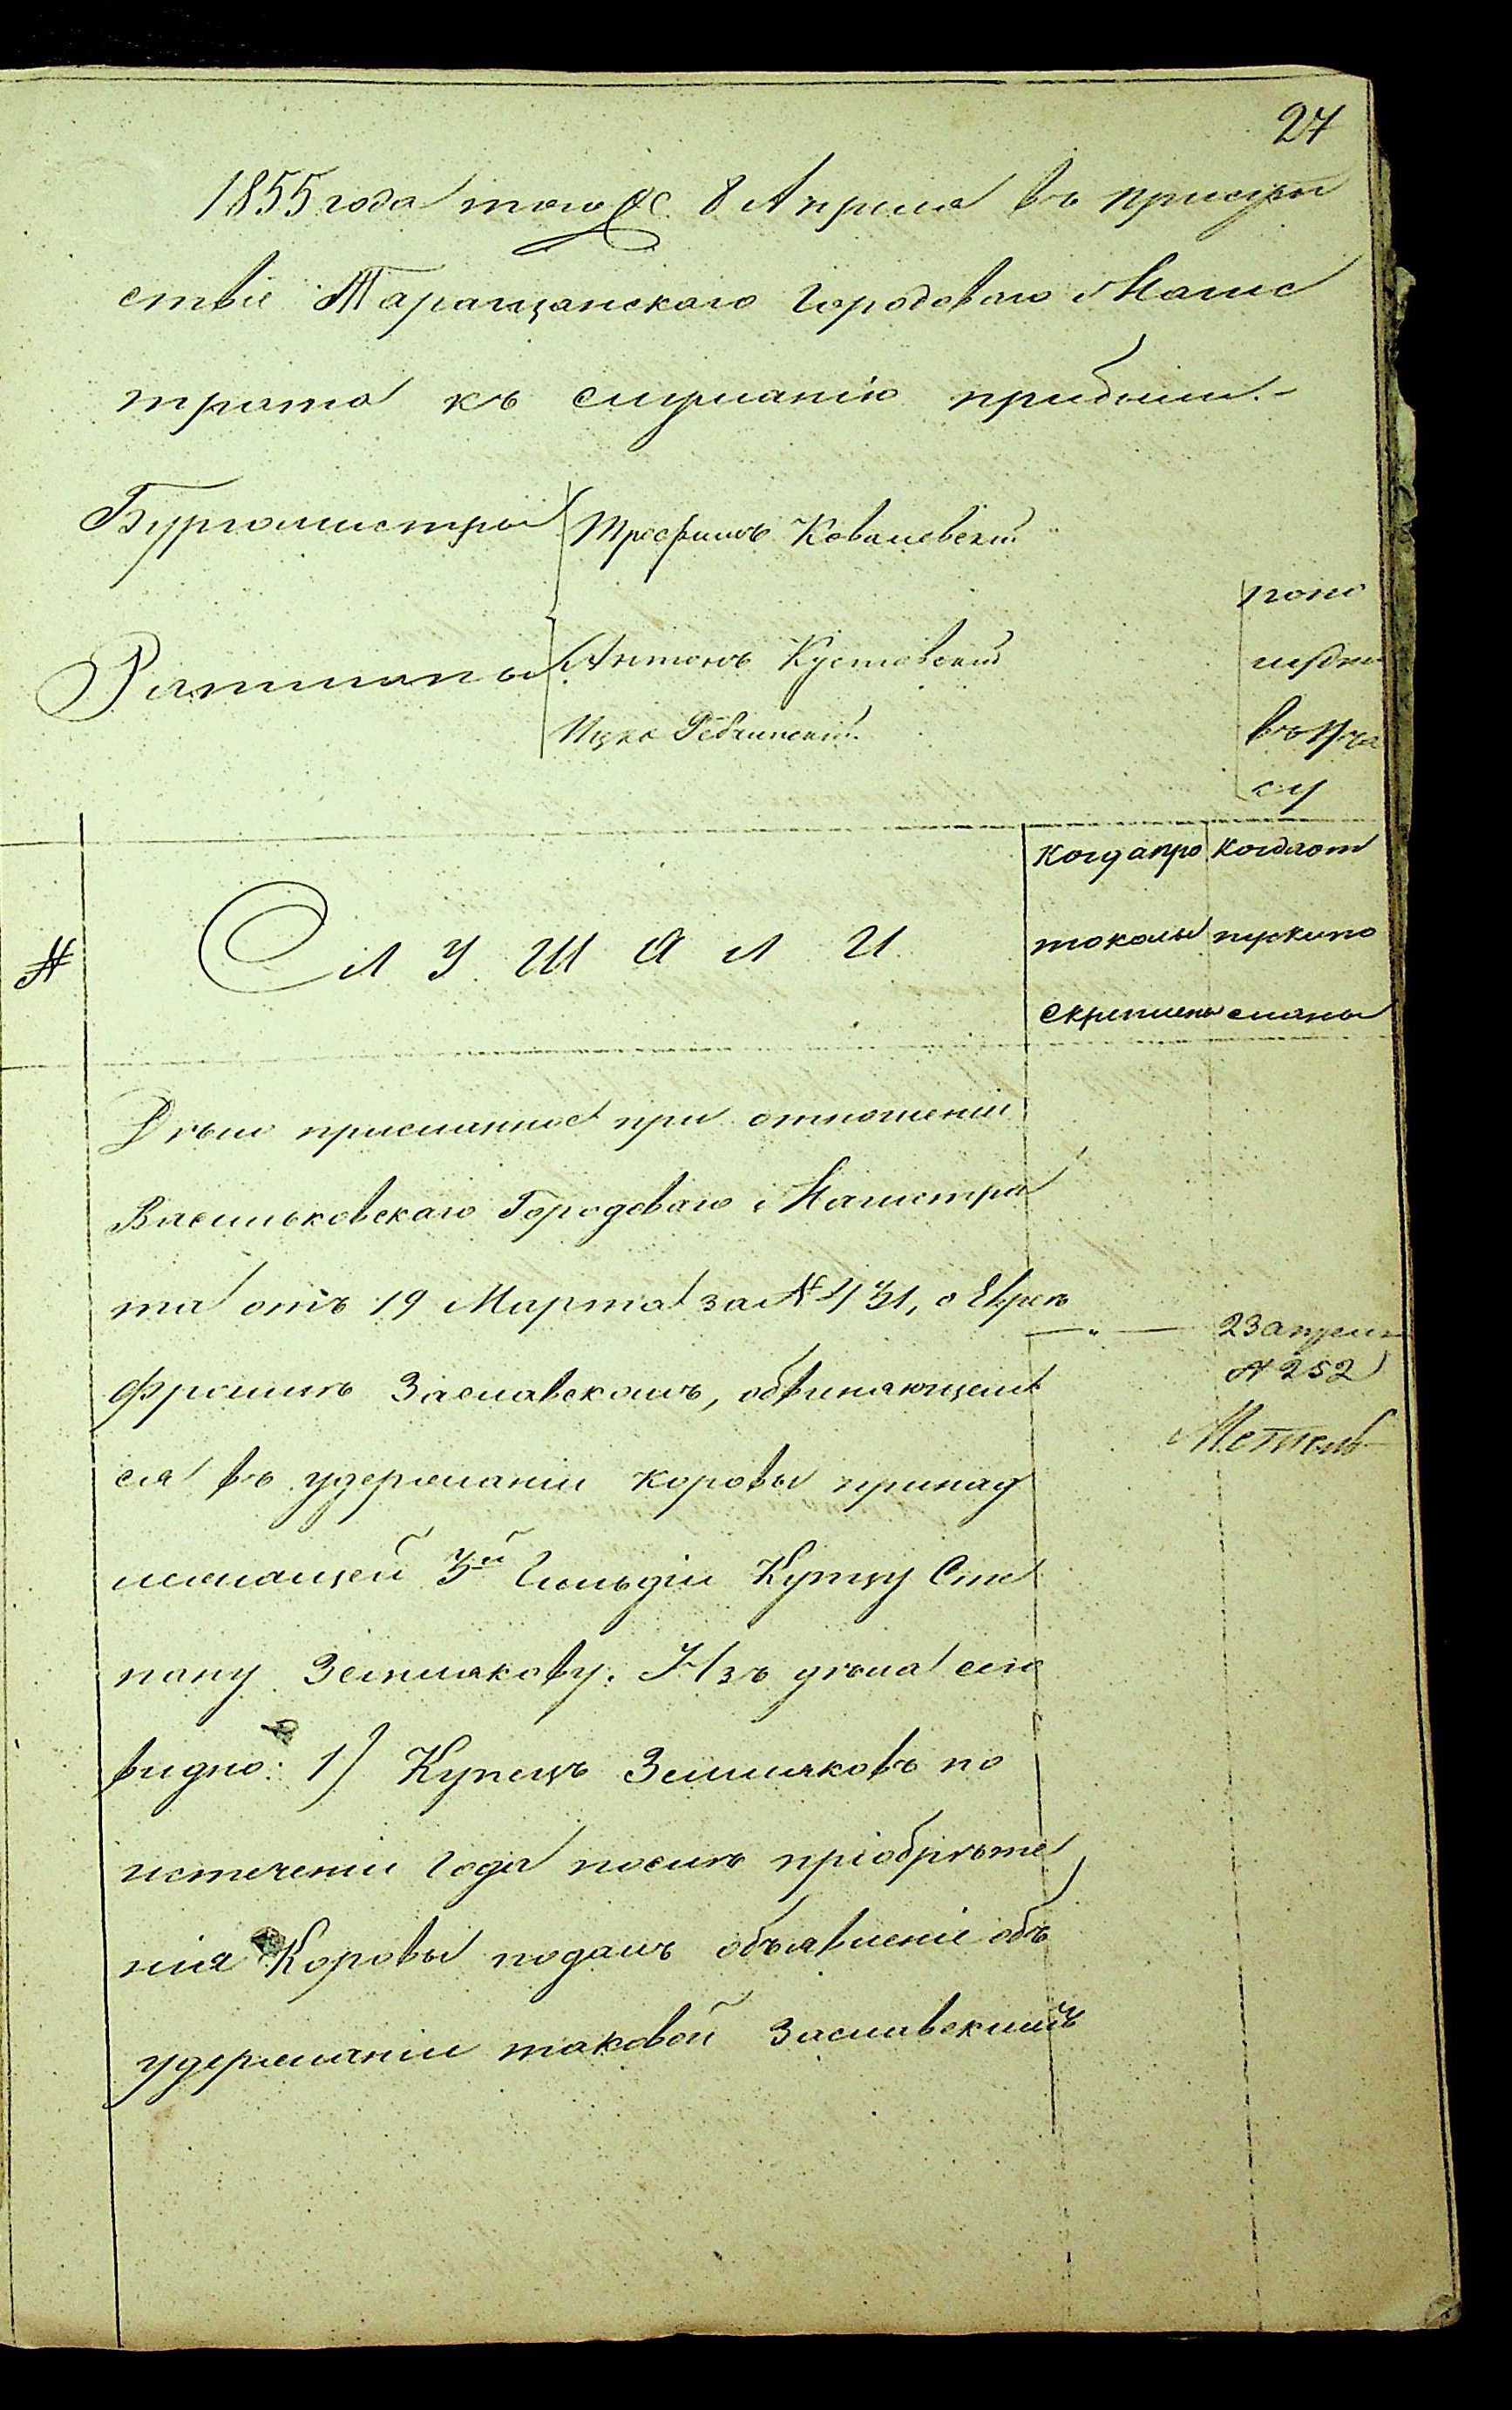 27
1855 года того же 8 Апреля въ присут
ствіе Таращанскаго Городоваго Магис
трата къ слушанію прибыли.-
Бургомистръ Трофимъ Ковалевскій
Ратманы Антонъ Кустовскій
Ицко
попо
лудни
въ
часу
№
СЛУШАЛИ
Когда про
токолы
скреплены
Когда от
пуски по
сланы
Дѣло присланное при отношеніи
Васильковскаго Городоваго Магистра
та отъ 19 Марта за № 431, о Евреѣ
Фроимѣ Заславскомъ, обвиняющем
ся въ удержаніи коровы принад
лежащей 3й Гильдіи Купцу Сте
пану Землякову. Изъ дѣла сего
видно: 1) Купецъ Земляковъ по
истеченіи года послѣ пріобрѣте
нія Коровы подалъ объявленіе объ
удержаніи таковой Заславскимъ
23 апреля
№ 252